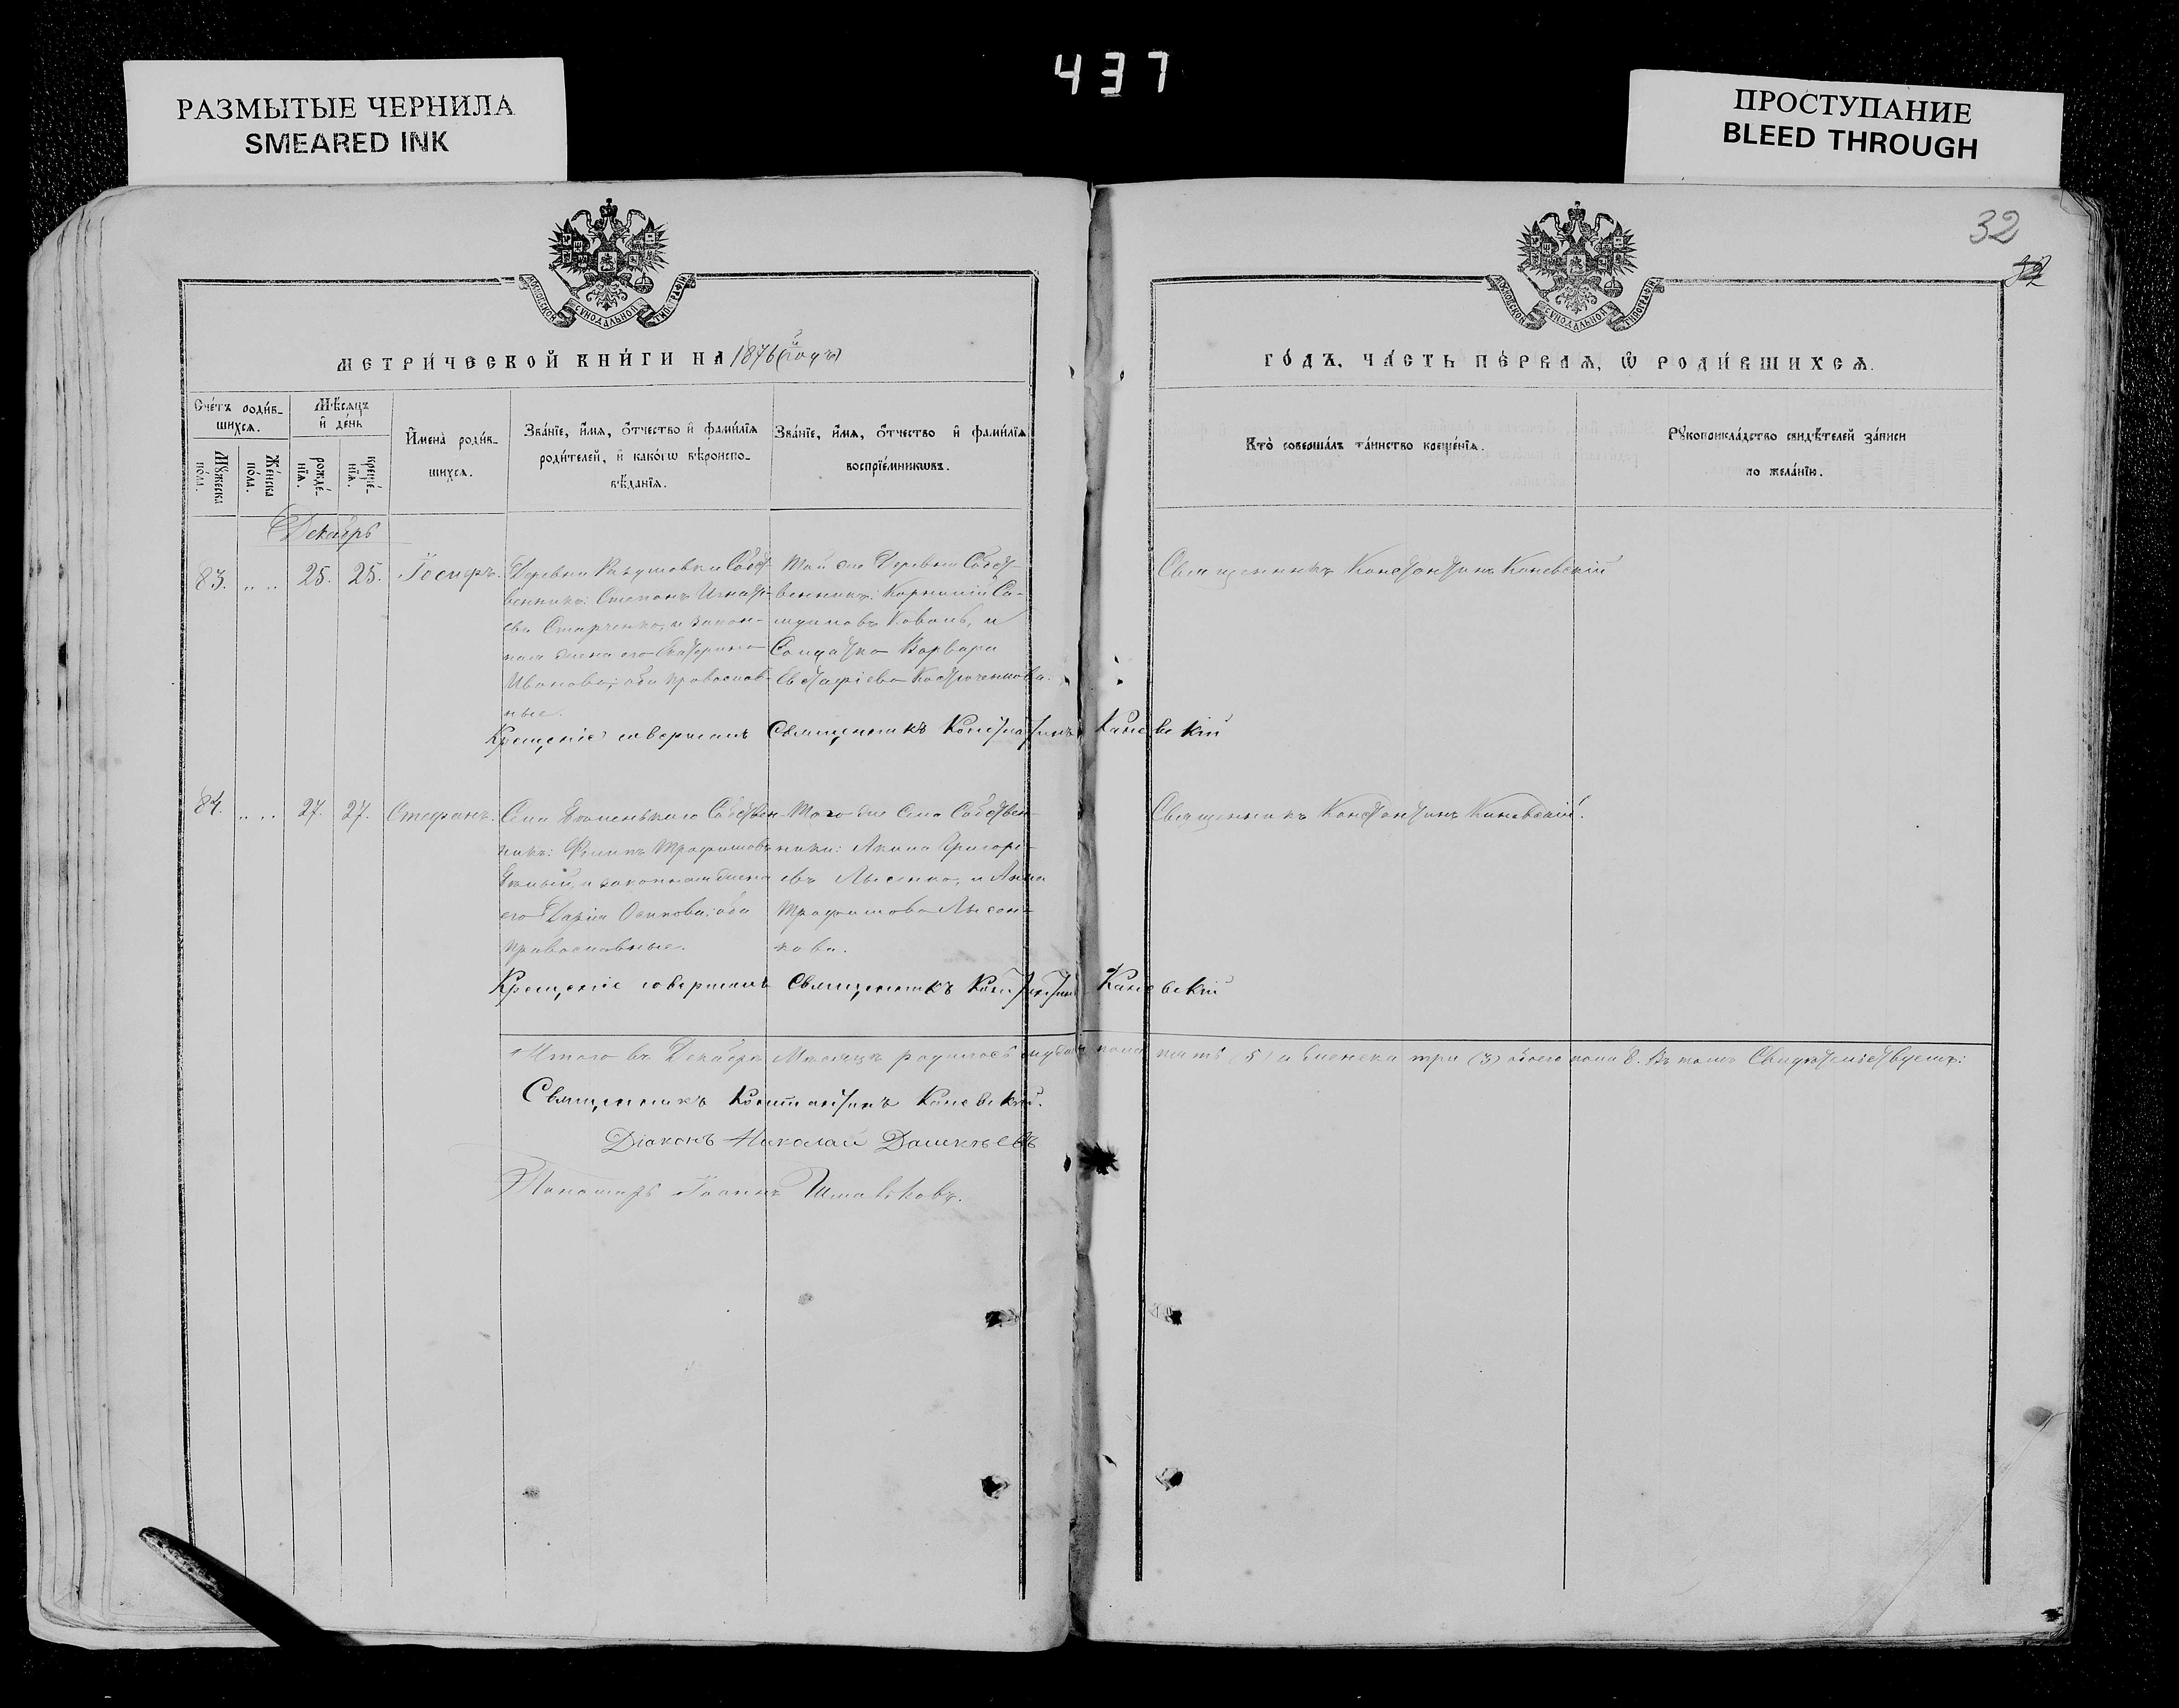 437
РАЗМЫТЫЕ ЧЕРНИЛА
SMEARED INK
ПРОСТУПАНИЕ
BLEED THROUGH
32
32
МОСКОВСКОЙ СѴНОДАЛЬНОЙ ТИПОГРАФІИ
МОСКОВСКОЙ СѴНОДАЛЬНОЙ ТИПОГРАФІИ
МЕТРИ́ЧЕСКОЙ КНИ́ГИ НА 1876 й (годъ)
ГО́ДЪ, ЧА́СТЬ ПЕ́РВАѦ, Ѽ РОДИ́ВШИХСѦ.
Сче́тъ роди́в-
шихсѧ.
Мꙋ́жеска по́ла.
Же́нска по́ла.
Мѣ́сѧцъ
и҆ де́нь
рожде́-
нїѧ.
креще́-
нїѧ.
И҆мена̀ роди́в-
шихсѧ.
Зва́нїе, и҆́мѧ, ѻ҆́тчество и҆ фами́лїѧ
роди́телей, и҆ како́гѡ вѣроиспо-
вѣ́данїѧ.
Зва́нїе, и҆́мѧ, ѻ҆́тчество и҆ фами́лїѧ
воспрїе́мникѡвъ.
Кто̀ соверша́лъ та́инство креще́нїѧ.
Рꙋкоприкла́дство свидѣ́телей за́писи
по жела́нїю.
Декабрь
83. .. .. 25. 25. Іосифъ.
Деревни Разумовки Собст-
венникъ: Степанъ Игнать-
евъ Старченко, и закон-
ная жена его Екатерина
Иванова; оба православ-
ные.
Той же Деревни Собст-
венникъ: Корнилій
Коваль, и
Солдатка Варвара
Евстафіева
Священникъ Константинъ Каневскій
Крещеніе совершалъ Священникъ Константинъ Каневскій
84. .. .. 27. 27. Стефанъ.
Села Собствен-
никъ: Филипъ Трофимовъ
и законная жена
его Дарія Осипова; оба
православные.
Того же Села Собствен-
никъ: Акила Григорь-
евъ Лысенко, и Анна
Трофимова Лысен-
кова.
Священникъ Константинъ Каневскій.
Крещеніе совершалъ Священникъ Константинъ Каневскій
Итого въ Декабрѣ Мѣсяцѣ родилось мужеска пола пять (5) и женска три (3) обоего пола 8. Въ томъ Свидѣтельствуемъ:
Священникъ Константинъ Каневскій.
Діаконъ Николай Дашкѣевъ
Паномарь Іоаннъ Шмальковъ.